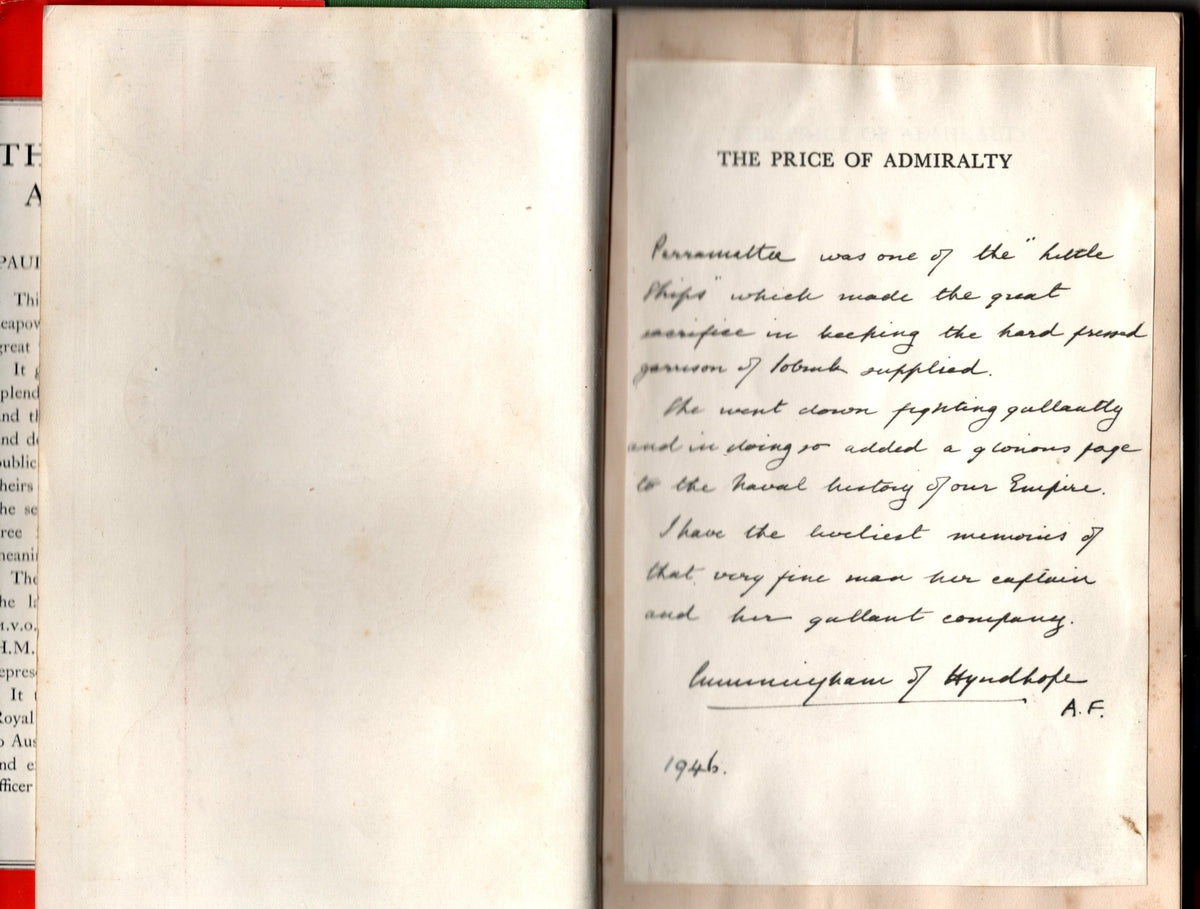 TH
A
PAUI
Thi
eapow
great
It g
plend
nd th
nd de
ublic
heirs
he se
ree
neani
The
he la
M.V.O.
H.M.
epres
It t
Royal
o Aus
nd e
fficer
THE PRICE OF ADMIRALTY
Parramatta was one of the "little
ships" which made the great
sacrifice in keeping the hard pressed
garrison of Tobruk supplied.
She went down fighting gallantly
and in doing so added a glorious page
to the Naval history of our Empire.
I have the liveliest memories of
that very fine man her captain
and her gallant company.
Cunningham of Hyndhope
A.F.
1946.